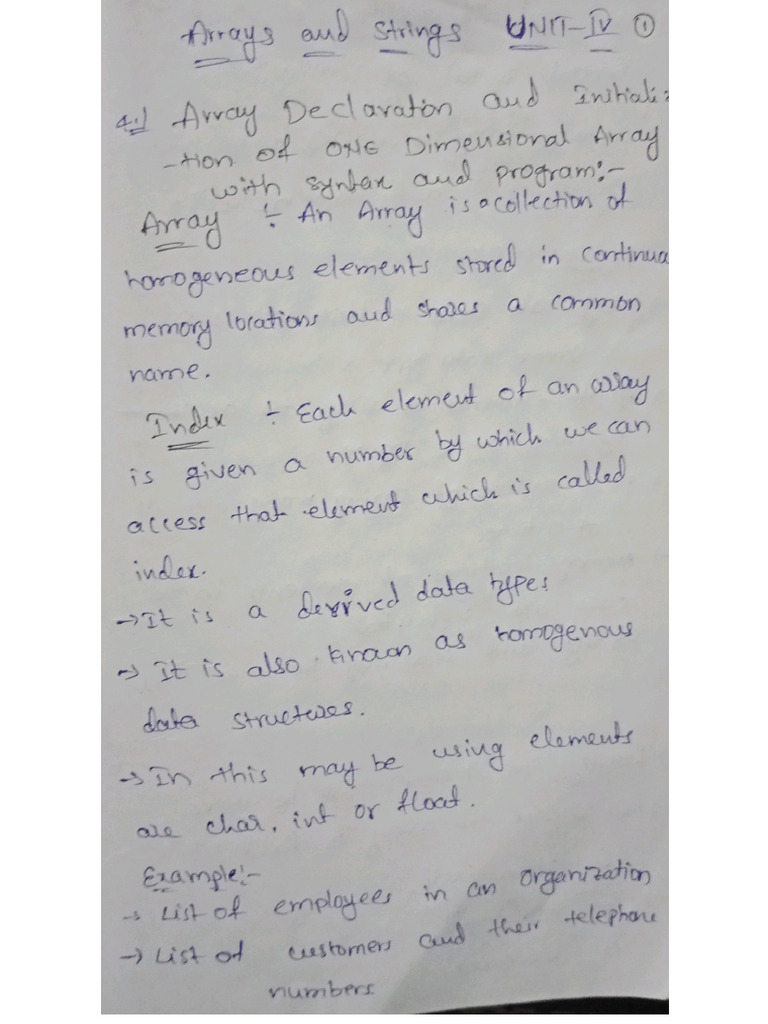 Arrays and Strings UNIT-IV ①
4.1 Array Declaration and Initiali
-tion of ONE Dimensional Array
with syntax and program:-
Array ÷ An Array is a collection of
homogeneous elements stored in continua
memory locations and shares a common
name.
Index ÷ Each element of an array
is given a number by which we can
access that element which is called
index.
→It is a derived data types
→ It is also known as homogenous
data structures.
→In this may be using elements
are char, int or float.
Example:-
→ List of employees in an organization
→ List of customers and their telephone
numbers